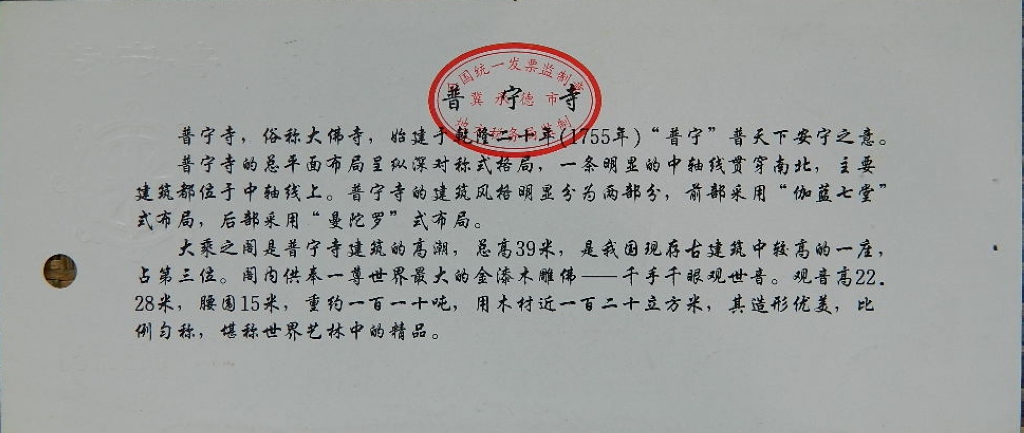 全国统一发票监制章
冀承德市
地方税务局监制
普宁寺
普宁寺，俗称大佛寺，始建于乾隆二十年(1755年)“普宁”普天下安宁之意。
普宁寺的总平面布局呈纵深对称式格局，一条明显的中轴线贯穿南北，主要
建筑都位于中轴线上。普宁寺的建筑风格明显分为两部分，前部采用“伽蓝七堂”
式布局，后部采用“曼陀罗”式布局。
大乘之阁是普宁寺建筑的高潮，总高39米，是我国现存古建筑中较高的一座，
占第三位。阁内供奉一尊世界最大的金漆木雕佛——千手千眼观世音。观音高22.
28米，腰围15米，重约一百一十吨，用木材近一百二十立方米，其造形优美，比
例匀称，堪称世界艺林中的精品。